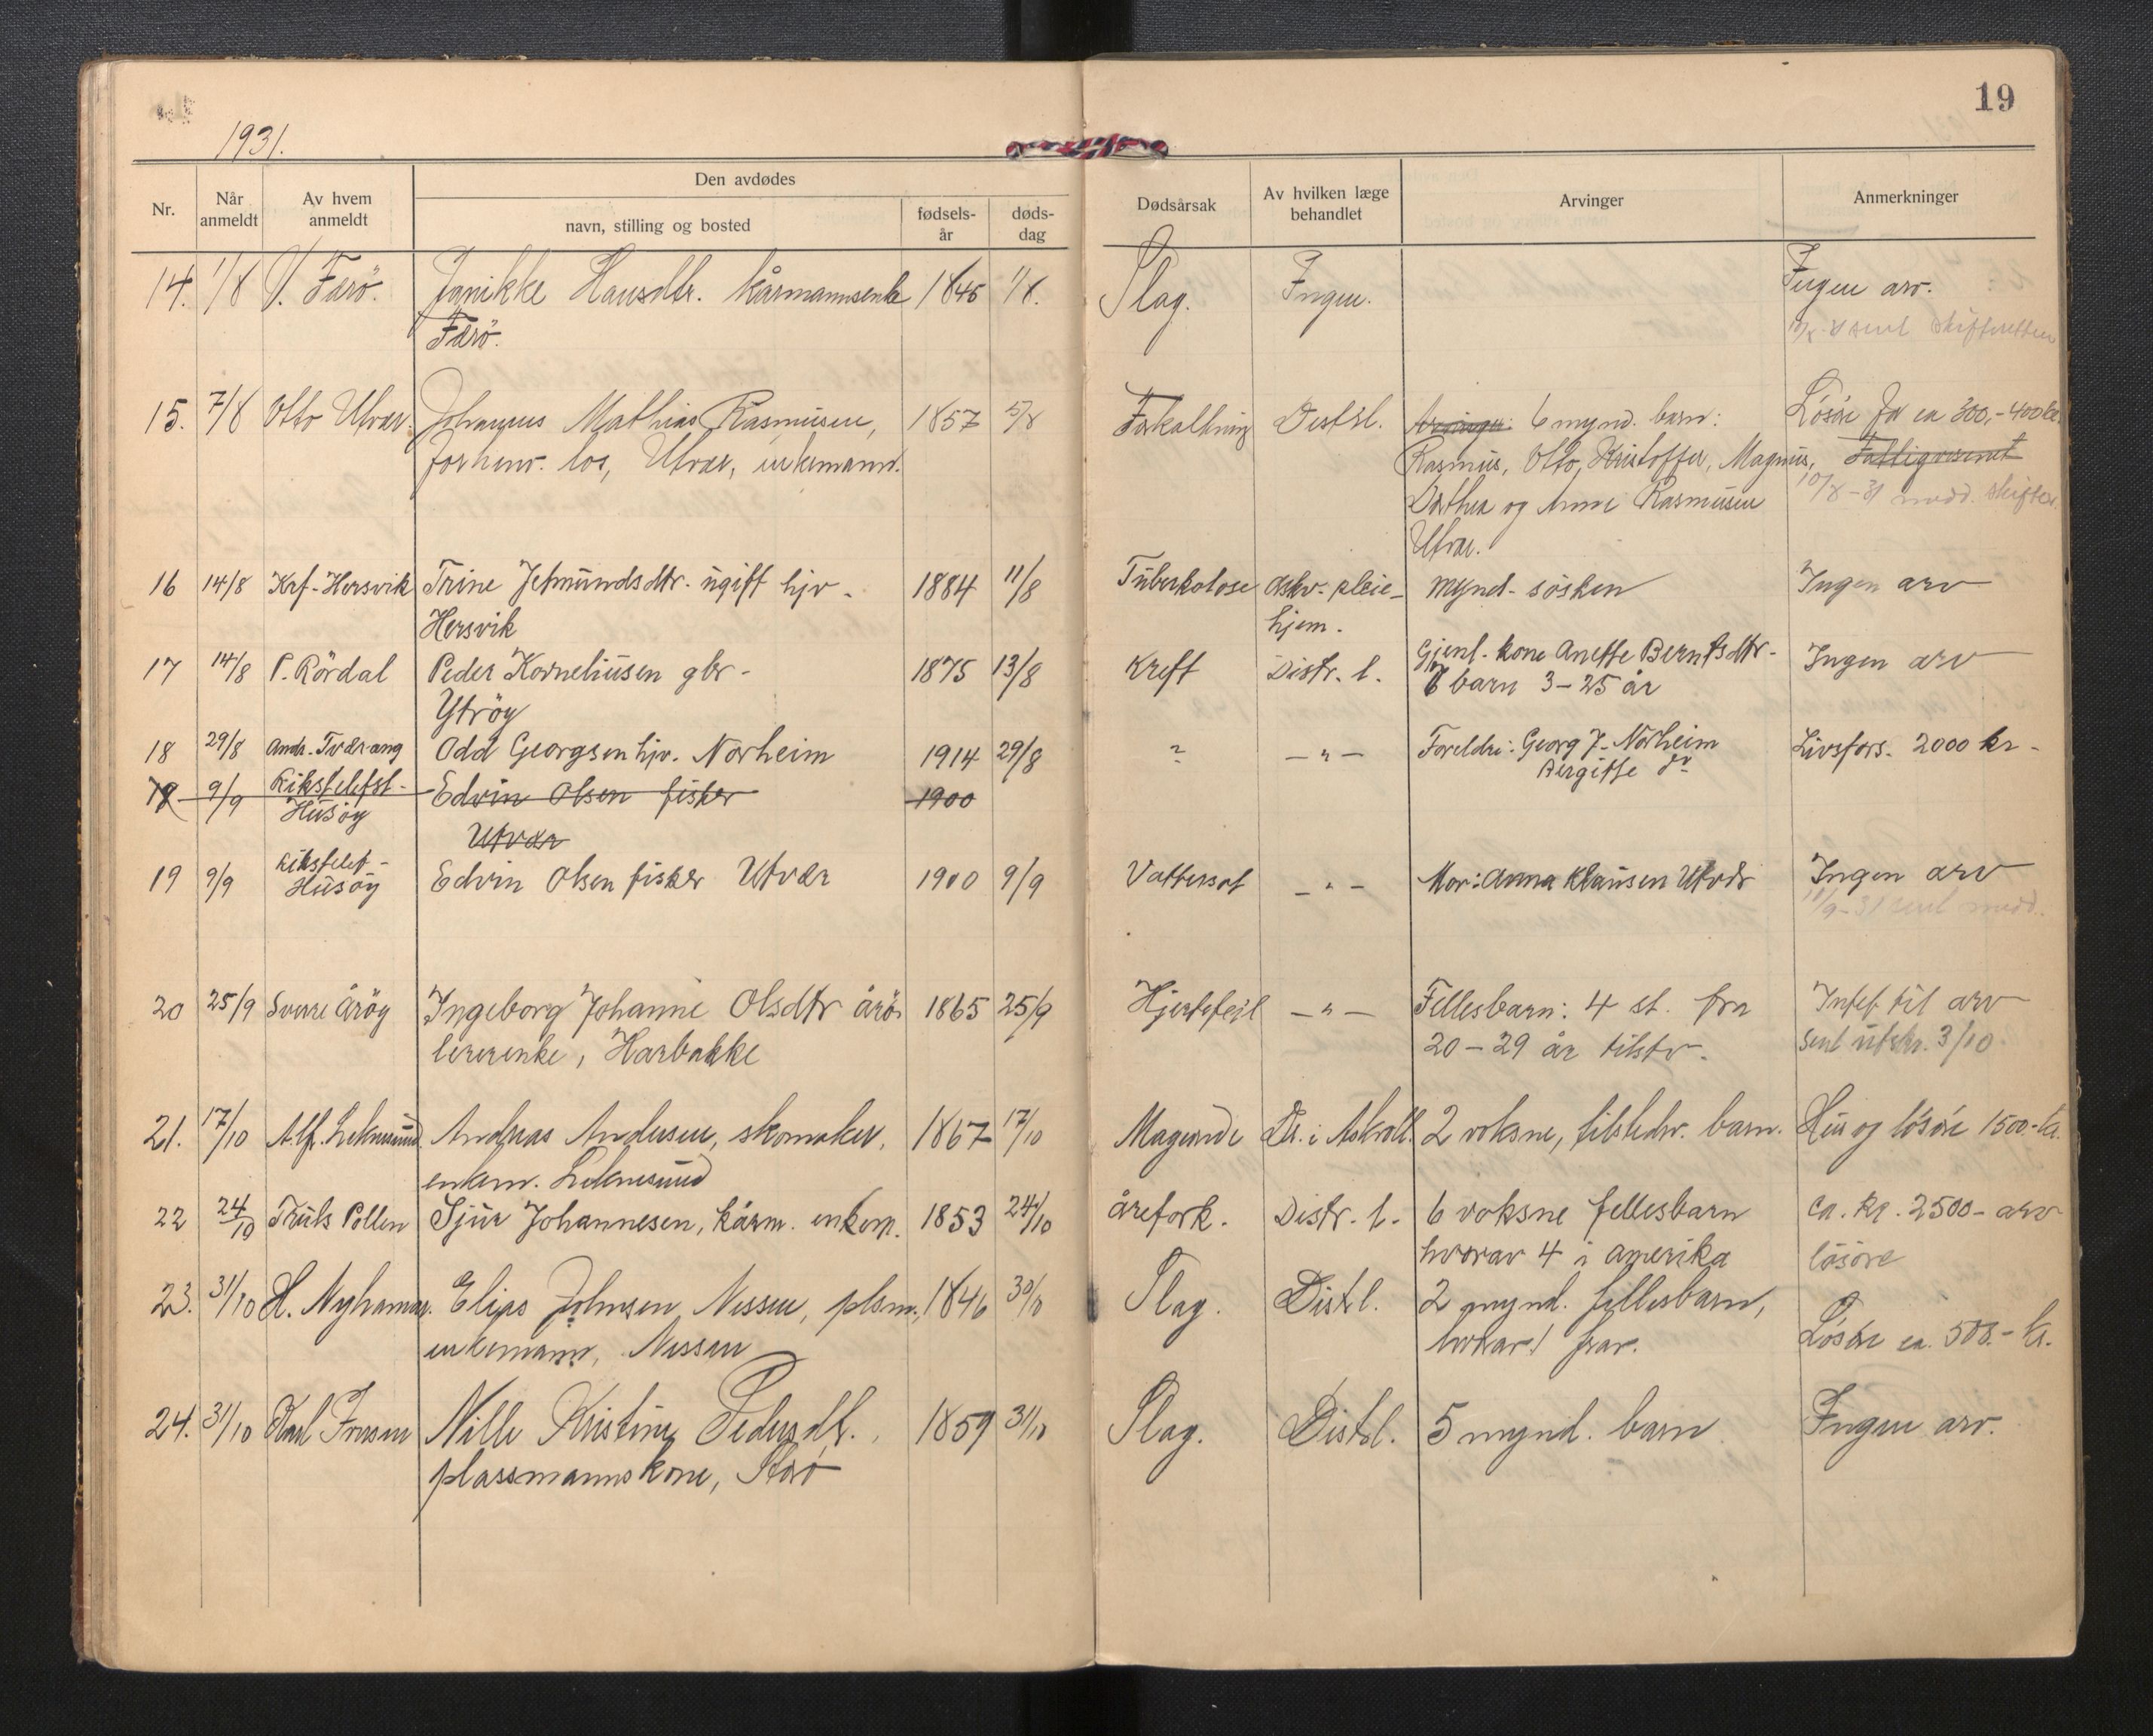 19
1931.
Nr.
Når anmeldt
Av hvem anmeldt
Den avdødes
navn, stilling og bosted
fødsels-år
døds-dag
Dødsårsak
Av hvilken læge behandlet
Arvinger
Anmerkninger
14. 1/8 V. Færö. Janikke Hansdtr. kårmannsenke 1845 1/8. Slag. Ingen. Ingen arv.
Færö. sent skifteretten
15. 7/8 Otto Utvær. Johannes Mathias Rasmussen, 1857 5/8 Forkalkning Distr.l. Arvinger: 6 mynd. barn: Lösöre for ca 300,-400 kr.
forhenv. los, Utvær, enkemann. Rasmus, Otto, Kristoffer, Magnus, Fattigvesenet
Dorthea og Anne Rasmussen 10/8-31 medd. skifter.
Utvær.
16 14/8 Krf. Hersvik Trine Jetmundsdtr. ugift hjv. 1884 11/8 Tuberkolose Askv. pleie- mynd. sösken Ingen arv
Hersvik hjem.
17 14/8 P. Rördal Peder Korneliusen gbr. 1875 13/8 Kreft Distr. l. Gjenl. kone Anette Berntsdtr. Ingen arv
Ytröy barn 3-25 år
18 29/8 Andr. Tværang Odd Georgsen hjv. Norheim 1914 29/8 ? -"- Foreldre: Georg J. Norheim Livsfors. 2000 kr.
Bergitte do
19 9/9 Rikstelefst. Edvin Olsen fisker 1900
Husöy Utvær
19 9/9 Rikstelef. Husöy Edvin Olsen fisker Utvær 1900 9/9 Vattersot -"- Mor: Anna Klausen Utvær Ingen arv
11/9-31 sent medd.
20 25/9 Sverre Åröy Ingeborg Johanne Olsdtr årö 1865 25/9 Hjertefeil -"- Fellesbarn: 4 st. fra Intet til arv
lererenke, Harbakke 20-29 år tilstv. sent utskr. 3/10.
21. 17/10 Alf. Leknessund Andreas Andersen, skomaker, 1867 17/10 Magesår Dr. i Askvoll. 2 voksne, tilstedv. barn. Hus og lösöre 1500.- kr.
enkem. Leknessund
22 24/10 Truls Pollen Sjur Johannesen, kårm. enkem. 1853 24/10 årefork. Distr. l. 6 voksne fellesbarn ca. kr. 2500- arv
hvorav 4 i amerika lösöre
23. 31/10 H. Nyhamar. Elias Johnsen Nessen, plsm., 1846 30/10 Slag. Distr.l. 2 mynd. fellesbarn,
enkemann, Nessen hvorav 1 frav. Lösöre ca. 500.- kr.
24. 31/10 Karl Iversen Nille Kristine Pedersdt. 1859 31/10 Slag. Distr.l. 5 mynd. barn Ingen arv.
plassmannskone, Storö